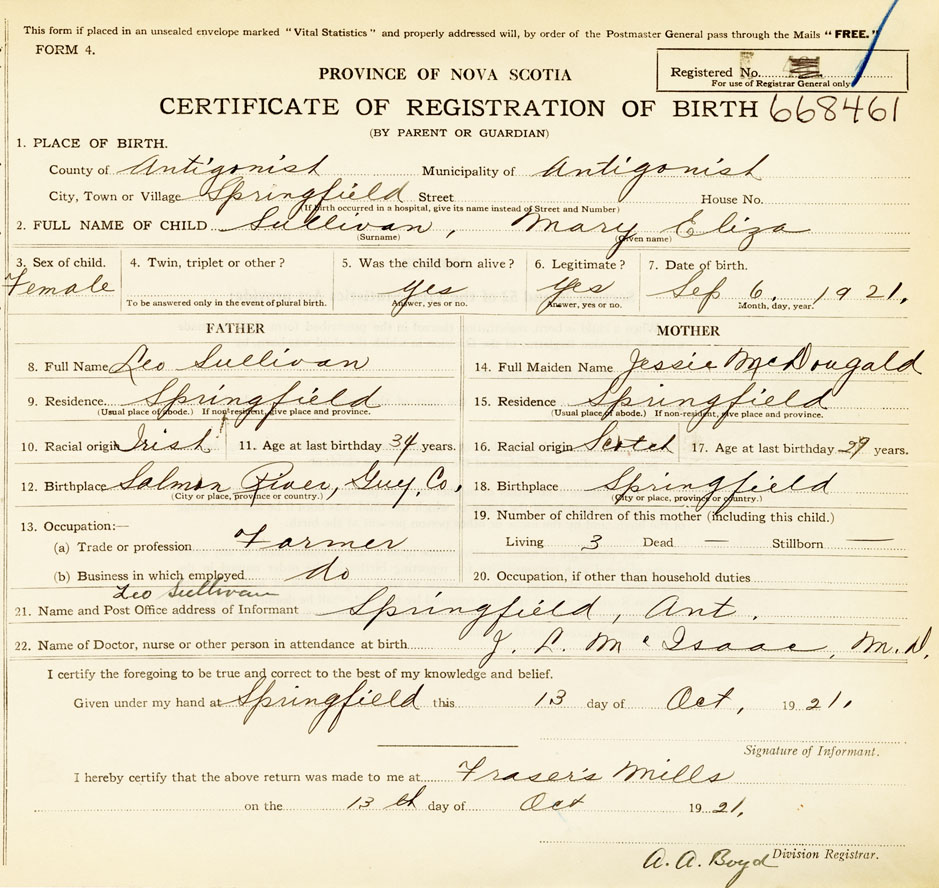 This form if placed in an unsealed envelope marked "Vital Statistics" and properly addressed will, by order of the Postmaster General pass through the Mails "FREE."
FORM 4.
PROVINCE OF NOVA SCOTIA
Registered No.
For use of Registrar General only
CERTIFICATE OF REGISTRATION OF BIRTH 668461
(BY PARENT OR GUARDIAN)
1. PLACE OF BIRTH.
County of Antigonish Municipality of Antigonish
City, Town or Village Springfield Street House No.
(If birth occurred in a hospital, give its name instead of Street and Number)
2. FULL NAME OF CHILD Sullivan, Mary Eliza
(Surname) (Given name)
3. Sex of child. 4. Twin, triplet or other? 5. Was the child born alive? 6. Legitimate? 7. Date of birth.
Female yes yes Sep 6. 1921.
To be answered only in the event of plural birth. Answer, yes or no. Answer, yes or no. Month, day, year.
FATHER
8. Full Name Leo Sullivan
9. Residence Springfield
(Usual place of abode.) If non-resident, give place and province.
10. Racial origin Irish 11. Age at last birthday 34 years.
12. Birthplace Salmon River, Guy. Co.
(City or place, province or country.)
13. Occupation:—
(a) Trade or profession Farmer
(b) Business in which employed do
MOTHER
14. Full Maiden Name Jessie McDougald
15. Residence Springfield
(Usual place of abode.) If non-resident, give place and province.
16. Racial origin Scotch 17. Age at last birthday 29 years.
18. Birthplace Springfield
(City or place, province or country.)
19. Number of children of this mother (including this child.)
Living 3 Dead — Stillborn —
20. Occupation, if other than household duties
Leo Sullivan
21. Name and Post Office address of Informant Springfield, Ant.
22. Name of Doctor, nurse or other person in attendance at birth J. L. McIsaac, M.D.
I certify the foregoing to be true and correct to the best of my knowledge and belief.
Given under my hand at Springfield this 13 day of Oct, 1921.
Signature of Informant.
I hereby certify that the above return was made to me at Fraser's Mills
on the 13th day of Oct 1921.
A. A. Boyd Division Registrar.